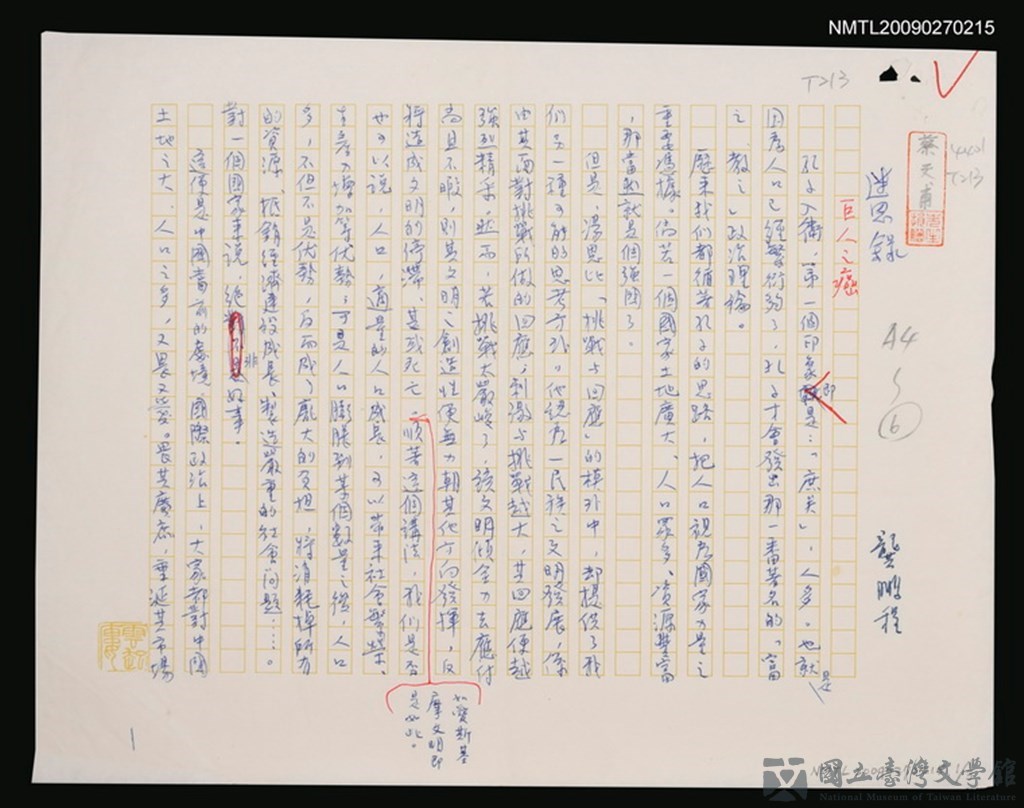 NMTL20090270215
T213
蔡文甫
4401
T213
迷思錄
龔鵬程
A4
6
巨人之癌
孔子入衛,第一個印象即是:「庶矣」,人多。也就是
因為人口已經繁衍夠了,孔子才會發出那一番著名的「富
之,教之」政治理論。
歷來我們都循著孔子的思路,把人口視為國家力量之
重要憑據。倘若一個國家土地廣大、人口眾多、資源豐富
,那當然就是個強國了。
但是,湯恩比「挑戰與回應」的模型中,卻提供了我
們另一種可能的思考方式。他認為一民族之文明發展,係
由其面對挑戰所做的回應,刺激與挑戰越大,其回應便越
強烈精采。然而,若挑戰太嚴峻了,該文明傾全力去應付
尚且不暇,則其文明之創造性便無力朝其他方向發揮,反
將造成文明的停滯、甚或死亡。如愛斯基
摩文明即
是如此。
順著這個講法,我們是否
也可以說,人口,適量的人口成長,可以帶來社會繁榮、
生產力增加等優勢;可是人口膨脹到某個數量之後,人口
多,不但不是優勢,反而成了龐大的負擔,將消耗掉所有
的資源、抵銷經濟建設成長、製造嚴重的社會問題……。
對一個國家來說,絕非好事。
這便是中國當前的處境。國際政治上,大家都對中國
土地之大、人口之多,又畏又愛。畏其廣庶,垂涎其市場
1
國立臺灣文學館
National Museum of Taiwan Literature